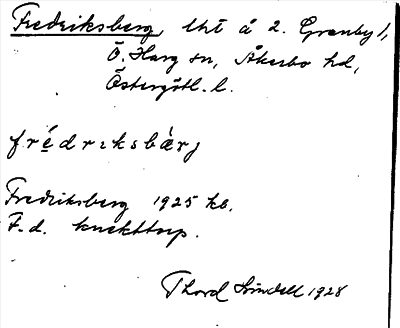 Fredriksberg, lht å 2. Granby 1,
Ö. Harg sn, Åkerbo hd,
Östergötl. l.
frédrɩksbàrj
Fredriksberg 1925 kb.
F.d. knekttorp.
Thord Lindell 1928